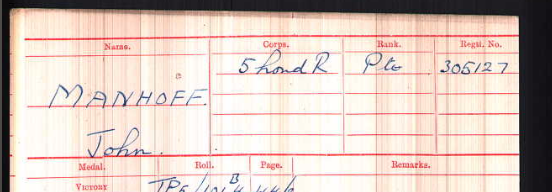 Name. Corps. Rank. Regtl. No.
5 Lond R Pte 305127
MANHOFF.
John.
Medal. Roll. Page. Remarks.
VICTORY